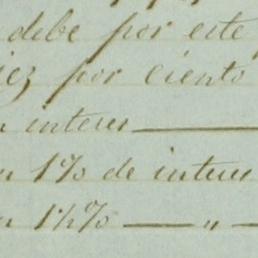 debe por este
iez por ciento
n interes ———
n 1% de interes
n 1½% —— " —